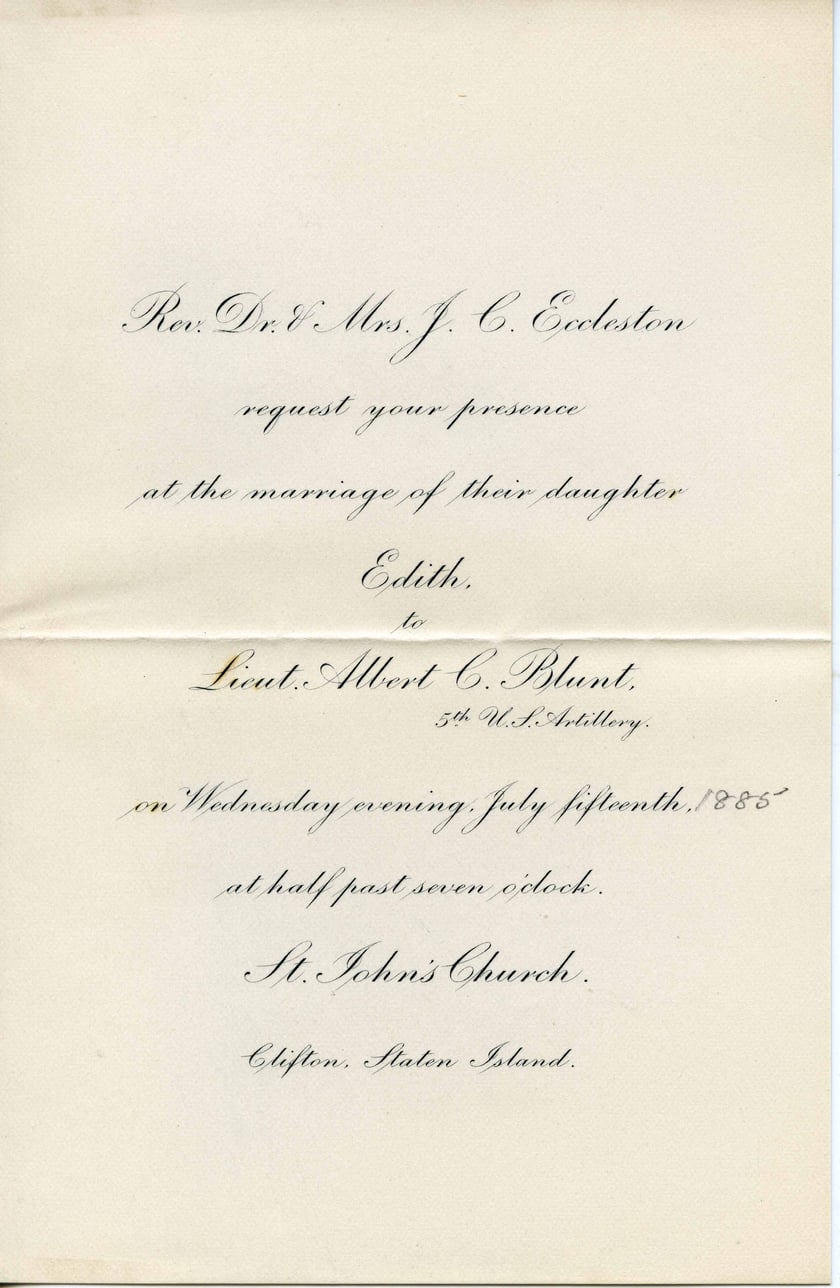 Rev. Dr. & Mrs. J. C. Eccleston
request your presence
at the marriage of their daughter
Edith,
to
Lieut. Albert C. Blunt,
5th U.S. Artillery.
on Wednesday evening, July fifteenth, 1885
at half past seven o'clock.
St. John's Church.
Clifton, Staten Island.